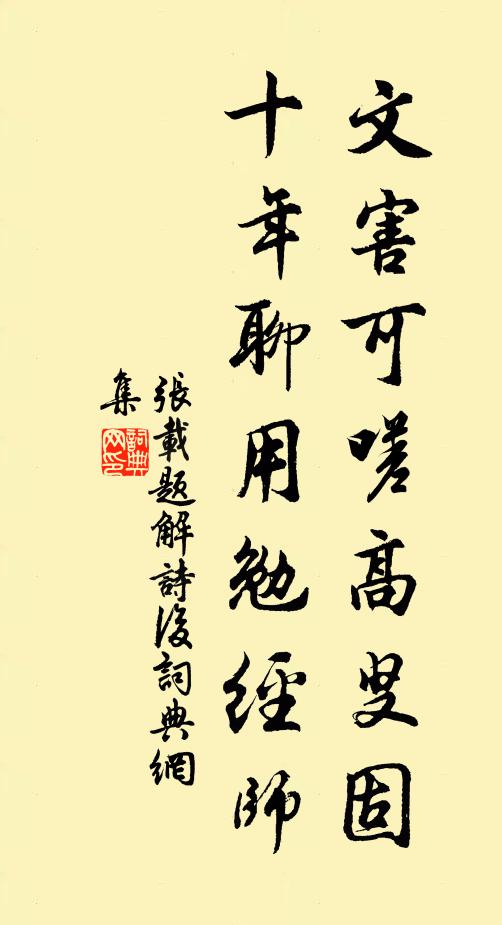 文害可嗟高叟固
十年聊用勉經師
張載題解詩後詞典網
集
詞典网印